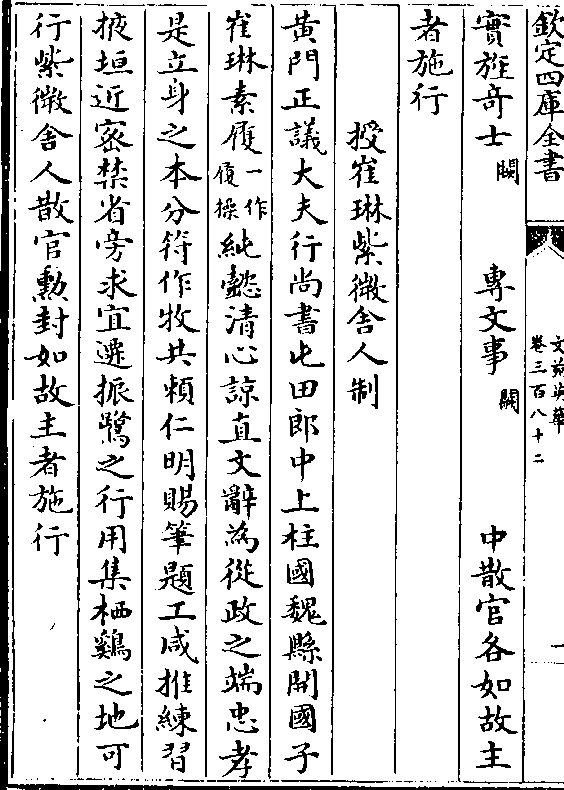 欽定四庫全書
文苑英華
卷三百八十二
一
實旌竒士闕專文事闕中散官各如故主
者施行
授崔琳紫微舍人制
黄門正議大夫行尚書屯田郎中上柱國魏縣開國子
崔琳素履一作履操純懿清心諒直文辭為從政之端忠孝
是立身之本分符作牧共頼仁明賜筆題工咸推練習
掖垣近宻禁省旁求宜遷振鷺之行用集栖鷄之地可
行紫微舍人散官勲封如故主者施行